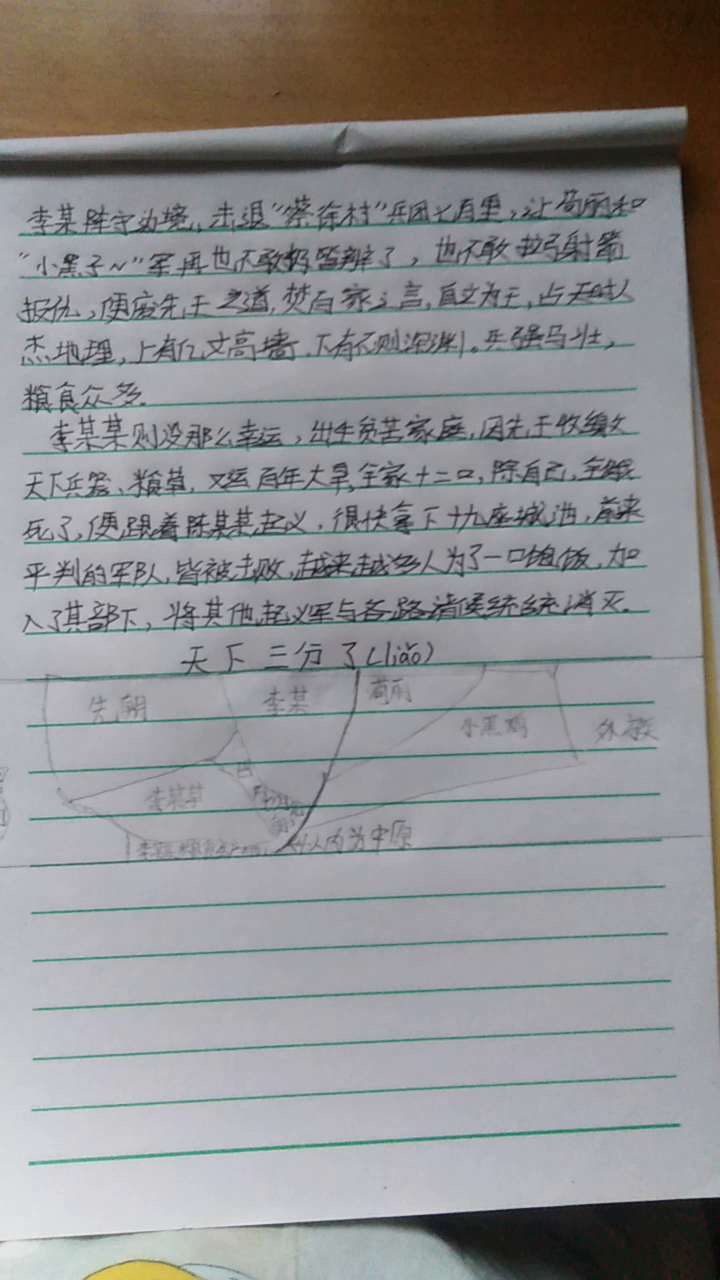 李某阵守边境，击退“蔡徐村”兵团七百里，让高丽和
“小黑子～”军再也不敢扬眉辫了，也不敢拉弓射箭
报仇，便废先王之道，焚百家之言，自立为王，占天时人
杰地理，上有亿丈高墙，下有不测深渊。兵强马壮，
粮食众多。
李某某则没那么幸运，出生贫苦家庭，因先王收缴了
天下兵器、粮草，又遇百年大旱，全家十二口，除自己，全饿
死了，便跟着陈某某起义，很快拿下十九座城池，前来
平判的军队，皆被击败，越来越多人为了一口饱饭，加
入了其部下，将其他起义军与各路诸侯统统消灭。
天下三分了（liǎo）
先朝 李某 高丽 小黑鸡 外族
李某某
以内为中原